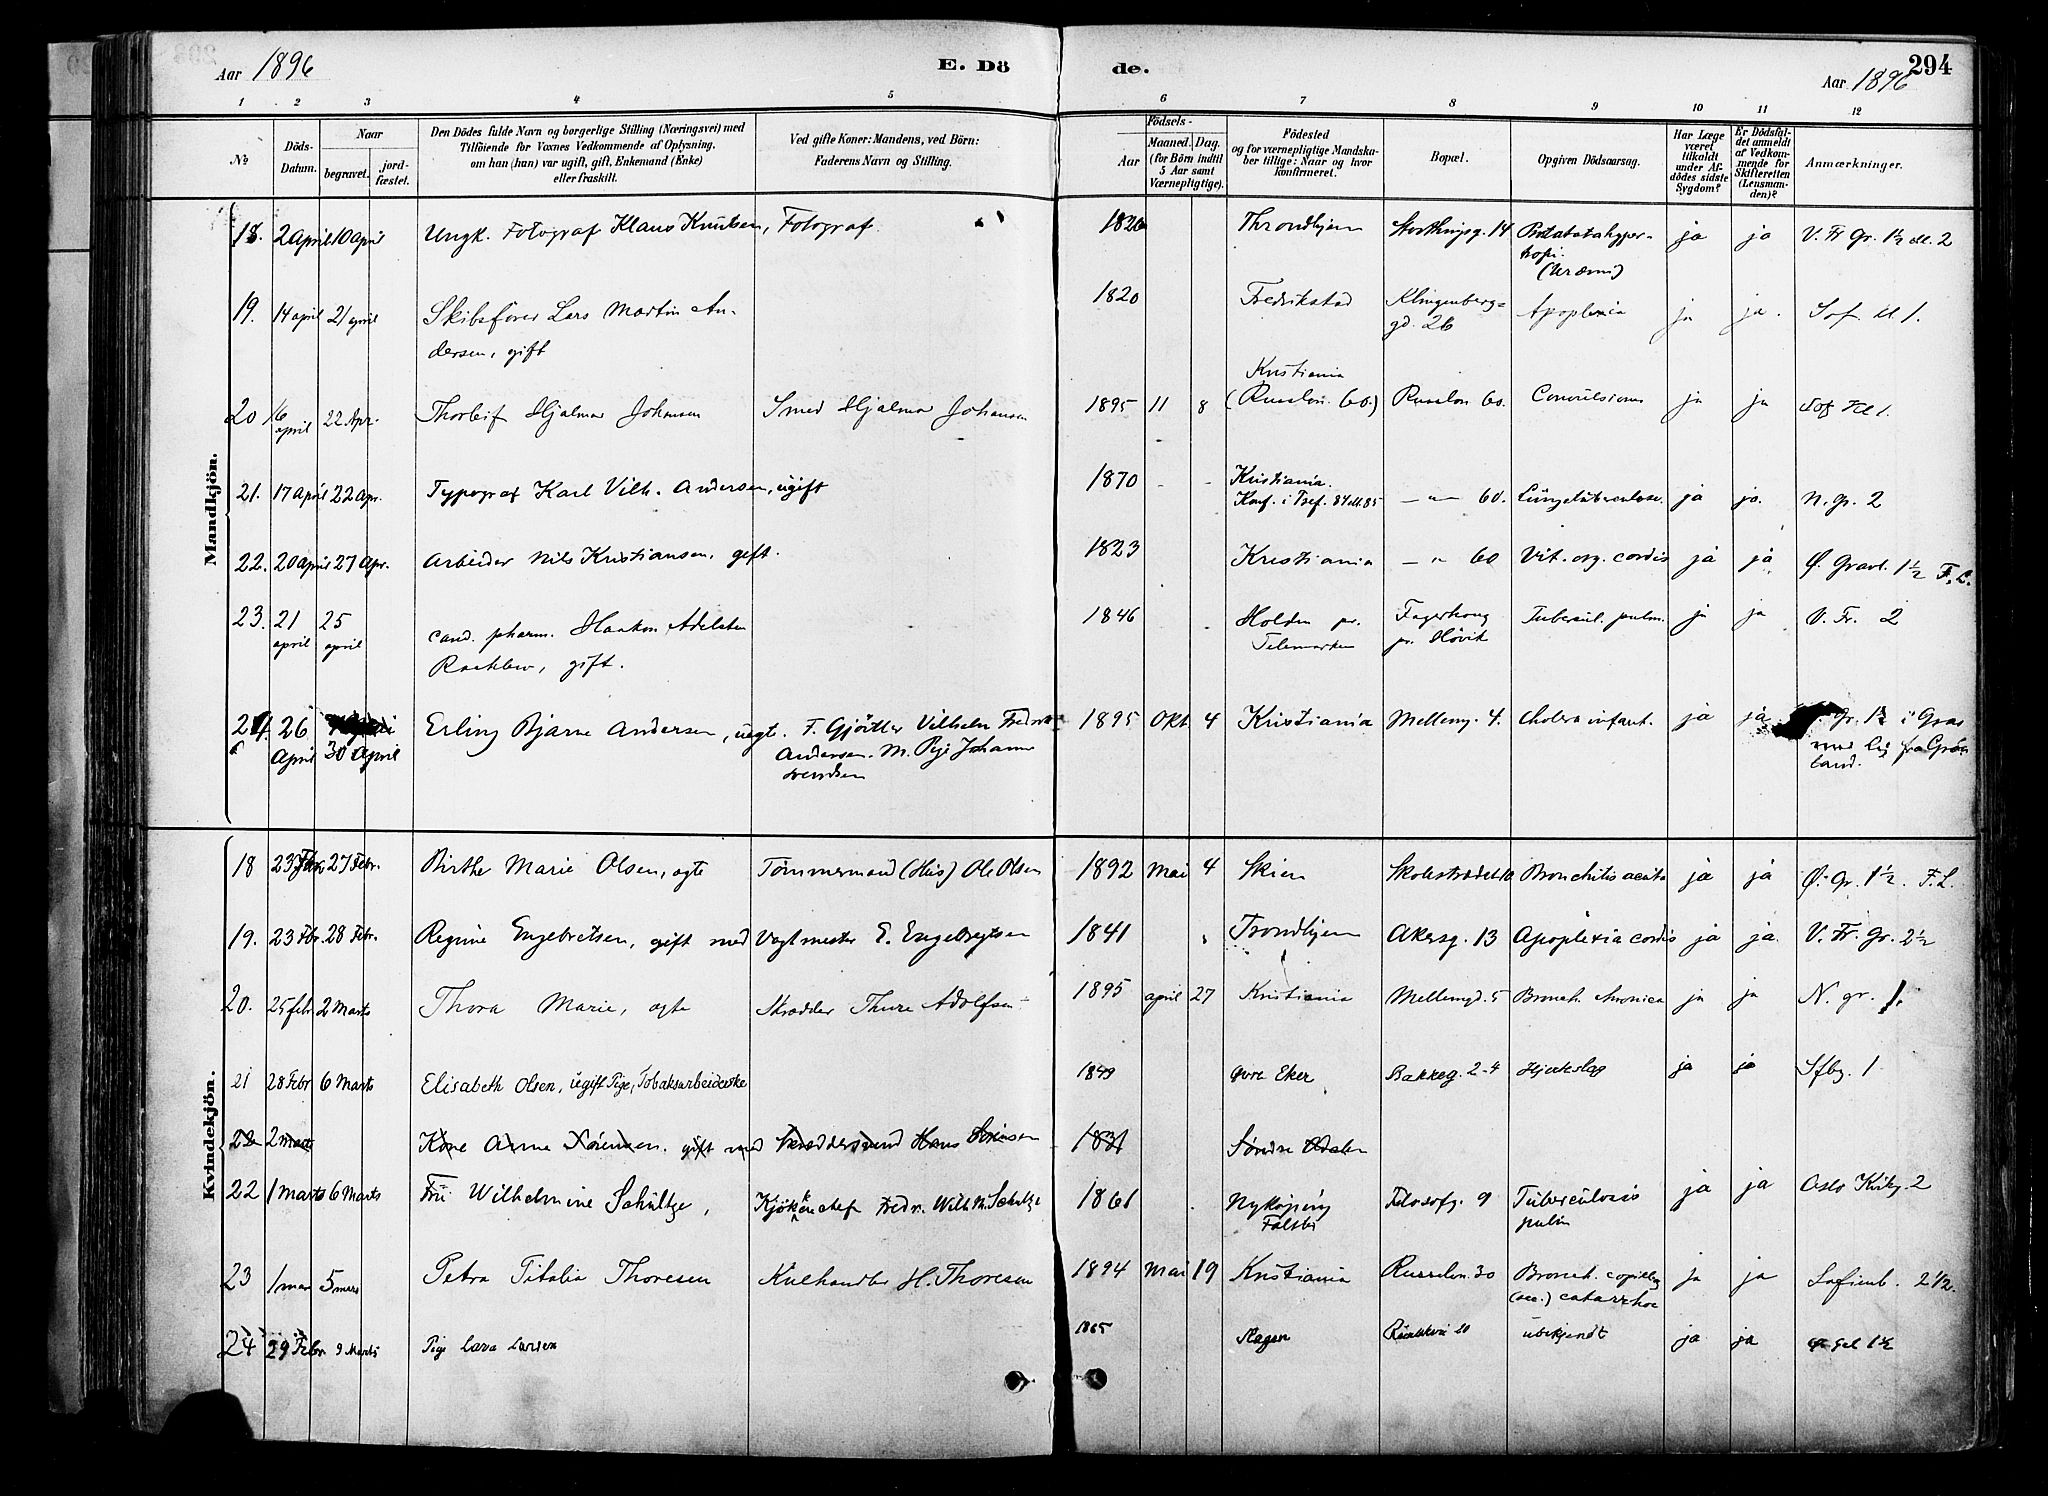 Aar 1896
E. Dö de.
294
Aar 1896
1 2 3 4 5 6 7 8 9 10 11 12
No
Döds-Datum.
Naar
begravet.
jordfæstet.
Den Dödes fulde Navn og borgerlige Stilling (Næringsvei) med
Tilföiende for Voxnes Vedkommende af Oplysning,
om han (hun) var ugift, gift, Enkemand (Enke)
eller fraskilt.
Ved gifte Koner: Mandens, ved Börn:
Faderens Navn og Stilling.
Födsels-
Aar
Maaned. Dag.
(for Börn indtil
5 Aar samt
Værnepligtige).
Födested
og for værnepligtige Mandskaber tillige: Naar og hvor
konfirmeret.
Bopæl.
Opgiven Dödsaarsag.
Har Læge
været
tilkaldt
under Afdödes sidste
Sygdom?
Er Dödsfaldet anmeldt
af Vedkommende for
Skifteretten
(Lensmanden)?
Anmærkninger.
Mandkjön.
18. 2 April 10 April Ungk. Fotograf Klaus Knudsen, Fotograf 1826 Throndhjem Storthingsg. 14 ja ja V. Fr Gr. 1½ 2
(Uræmi)
19. 14 april 21 april Skibsfører Lars Martin An-
dersen, gift 1820 Fredrikstad Klingenberg-
gd. 26 Apoplexia ja ja. Sof. kl 1.
20 16 april 22 Apr. Thorleif Hjalmar Johansen Smed Hjalmar Johansen 1895 11 8 Kristiania
(Russløn. 60.) Russløn 60. Convulsiones ja ja Sof kl 1.
21. 17 April 22 Apr. Typograf Karl Vilh. Andersen, ugift 1870 - - Kristiania.
Konf. i 85 — " — 60. Lungetuberculose. ja ja. N. gr. 2
22. 20 April 27 Apr. Arbeider Nils Kristiansen, gift. 1823 Kristiania — " 60 Vit. org. cordis ja ja Ø. Gravl. 1½ F. L.
23. 21 april 25 april cand. pharm. Haakon Adelsten
gift. 1846 Holden pr.
Telemarken
pr. Høvik Tubercul. pulm. ja ja V. Fr. 2
24. 26 April 30 April Erling Bjarne Andersen, uegt. F. Gjørtler Vilhelm Fredrik
Andersen. M. Pige Johanne
Svendsen 1895 Okt 4 Kristiania Mellemg. 4. Cholera infant. ja ja Gr. 1½ i Grav
med lig fra Grøn
land.
Kvindekjön.
18 23 Febr 27 Febr. Birthe Marie Olsen, ægte Tømmermand (Hus) Ole Olsen 1892 Mai 4 Skien Skolestrædet 10 Bronchitis acuta ja ja Ø. Gr. 1½. F. L.
19. 23 Fbr. 28 Febr. Regine Engebretsen, gift med Vagtmester E. Engebregtsen 1841 Trondhjem Akersg. 13 Apoplexia cordis ja ja V. Fr. Gr. 2½
20. 25 febr 2 Marts Thora Marie, ægte Skrædder Thure Adolfsen 1895 april 27 Kristiania Mellemgd. 5 Bronch. chronica ja ja N. gr. 1.
21 28 Febr 6 Marts Elisabeth Olsen, ugift Pige, Tobaksarbeiderske 1849 Øvre Eker Bakkeg. 2-4 Hjerteslag ja ja Sfbg. 1
22 2 Marts Kone Anne Sørensen. gift med Skræddersvend Hans Sørensen 1831 Søndre Odalen
22 1 Marts 6 Marts Fru Wilhelmine Schultze, Kjøkkenchef Fredr. Wilh M. Schultze 1861 Nykøping
Falster Filosofg. 9 Tuberculosis
pulm ja ja Oslo Kirkg. 2
23 1 mar 5 mars Petra Titalia Thoresen Kulhandler H. Thoresen 1894 Mai 19 Kristiania Russeløn. 30 Bronch. capillary
catarrhoe ja ja Sofienb. 2 1/2.
24 29 Febr 9 Marts Pige Lava Larsen 1865 ubekjendt ja ja 1½